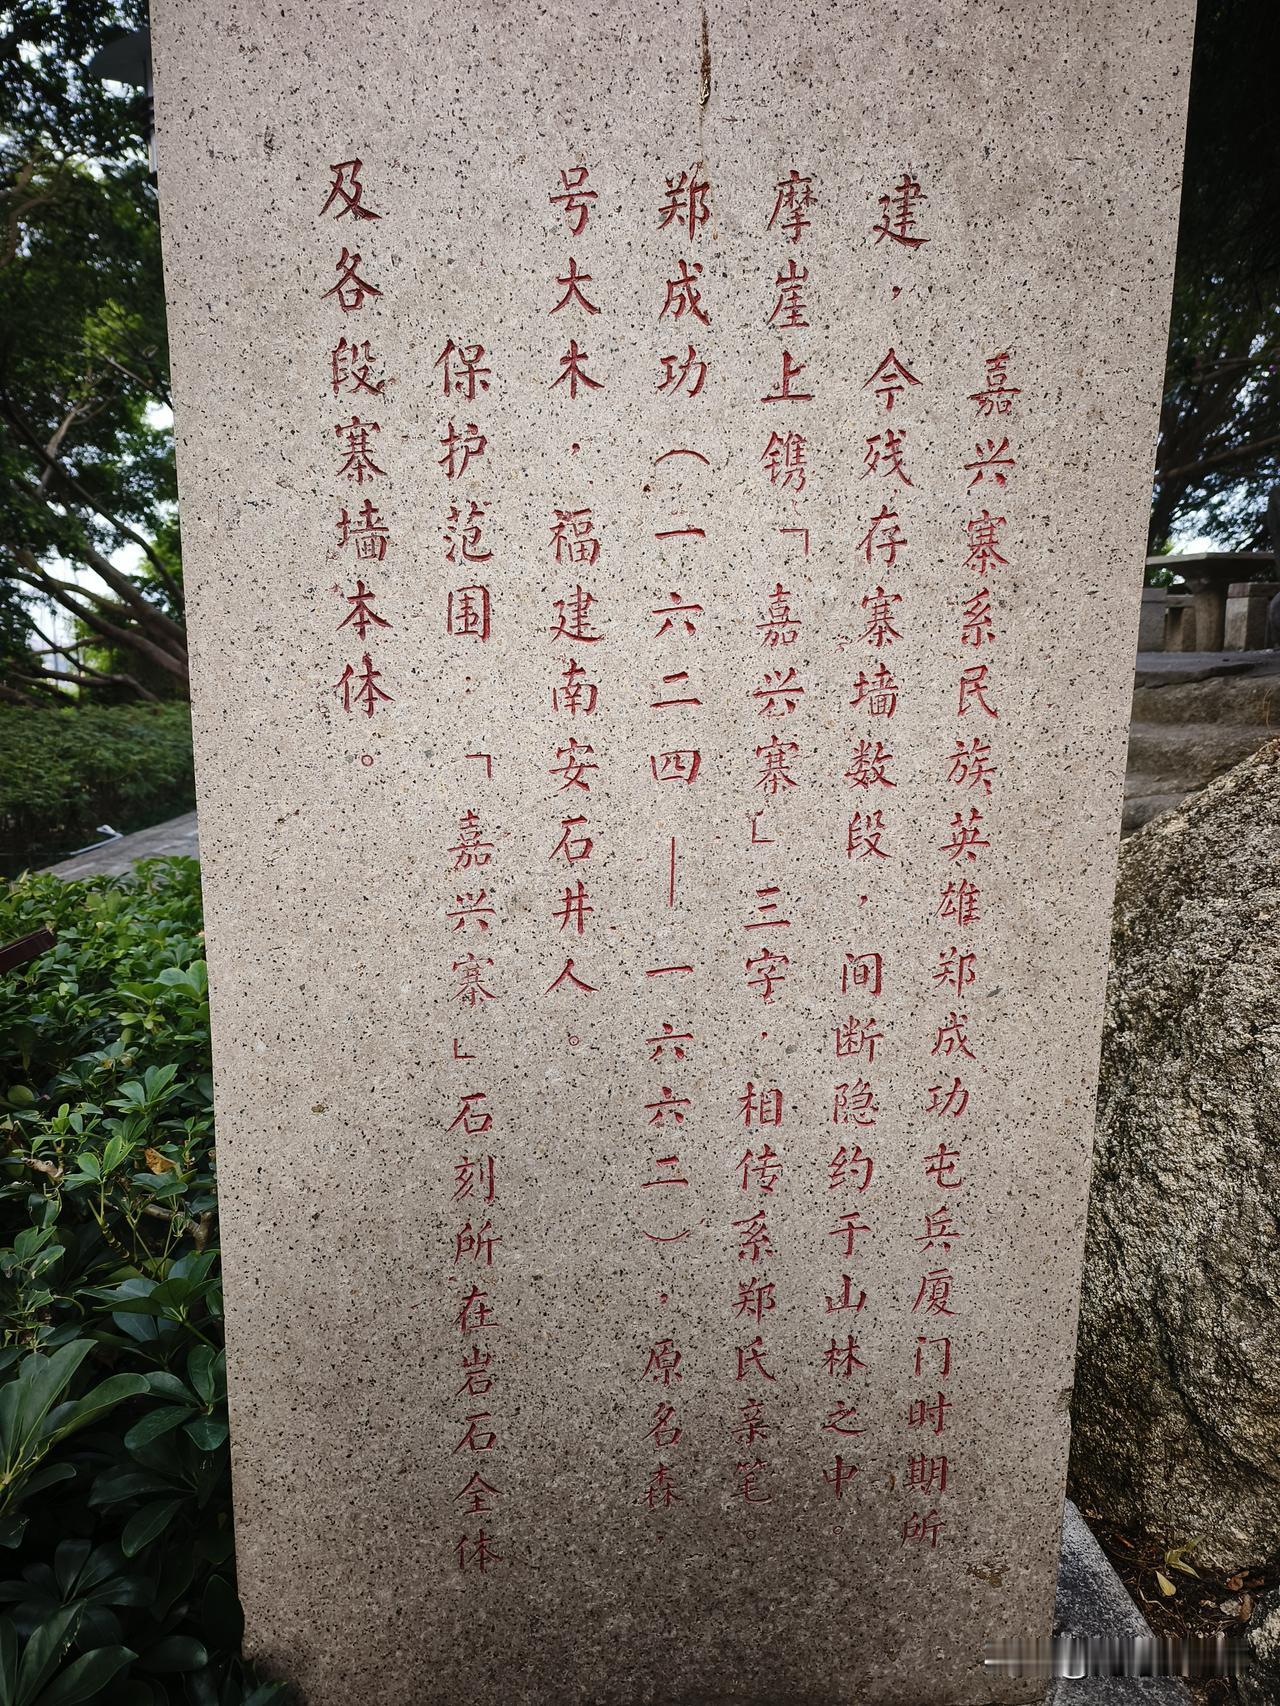 嘉兴寨系民族英雄郑成功屯兵厦门时期所
建，今残存寨墙数段，间断隐约于山林之中。
摩崖上镌「嘉兴寨」三字，相传系郑氏亲笔。
郑成功（一六二四—一六六二），原名森，
号大木，福建南安石井人。
保护范围：「嘉兴寨」石刻所在岩石全体
及各段寨墙本体。